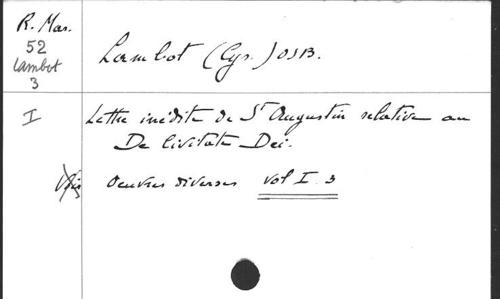 R. Mar.
52
Lambot
3
Lambot (Cyr.) OSB.
I
Lettre inédite de St Augustin relative au
De Civitate Dei.
Voir Oeuvres diverses vol I. 3